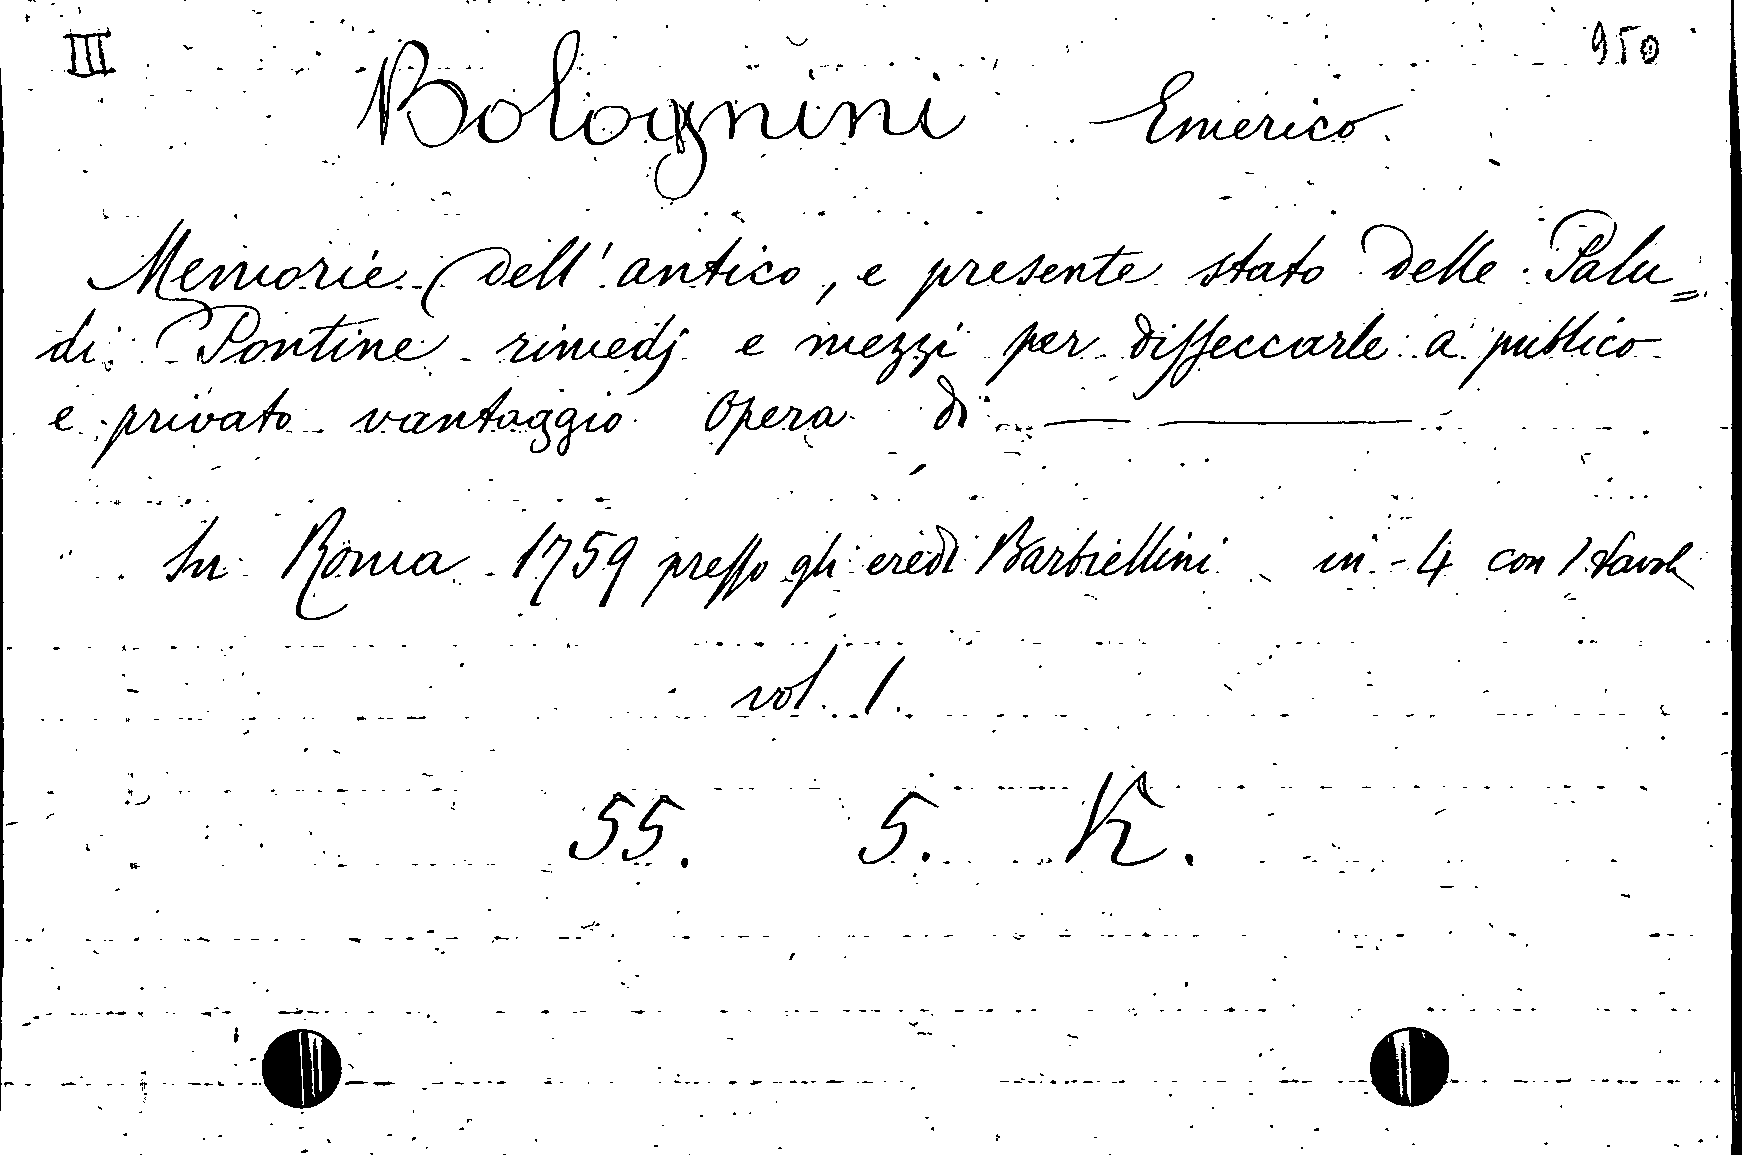 III 950
Bolognini Emerico
Memorie dell'antico, e presente stato delle Palu=
di Pontine rimedj e mezzi per disseccarle a publico
e privato vantaggio Opera di ——— ———
In Roma 1759 presso gli eredi Barbiellini in-4 con 1 tavole
vol. 1.
55. 5. K.